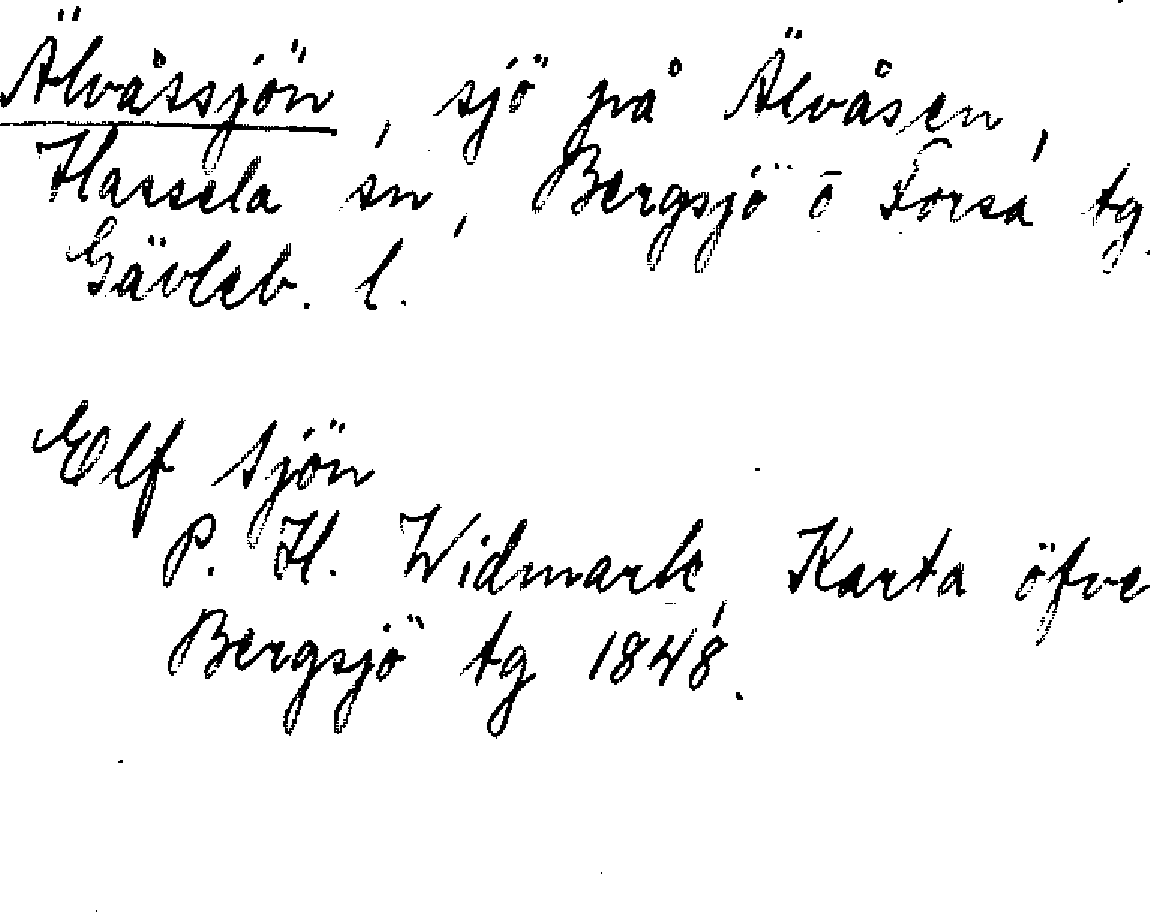 Älvåssjön, sjö på Älvåsen,
Hassela sn, Bergsjö o Forsa tg.
Gävleb. l.
Elf sjön
P. H. Widmark, Karta öfve
Bergsjö tg 1848.